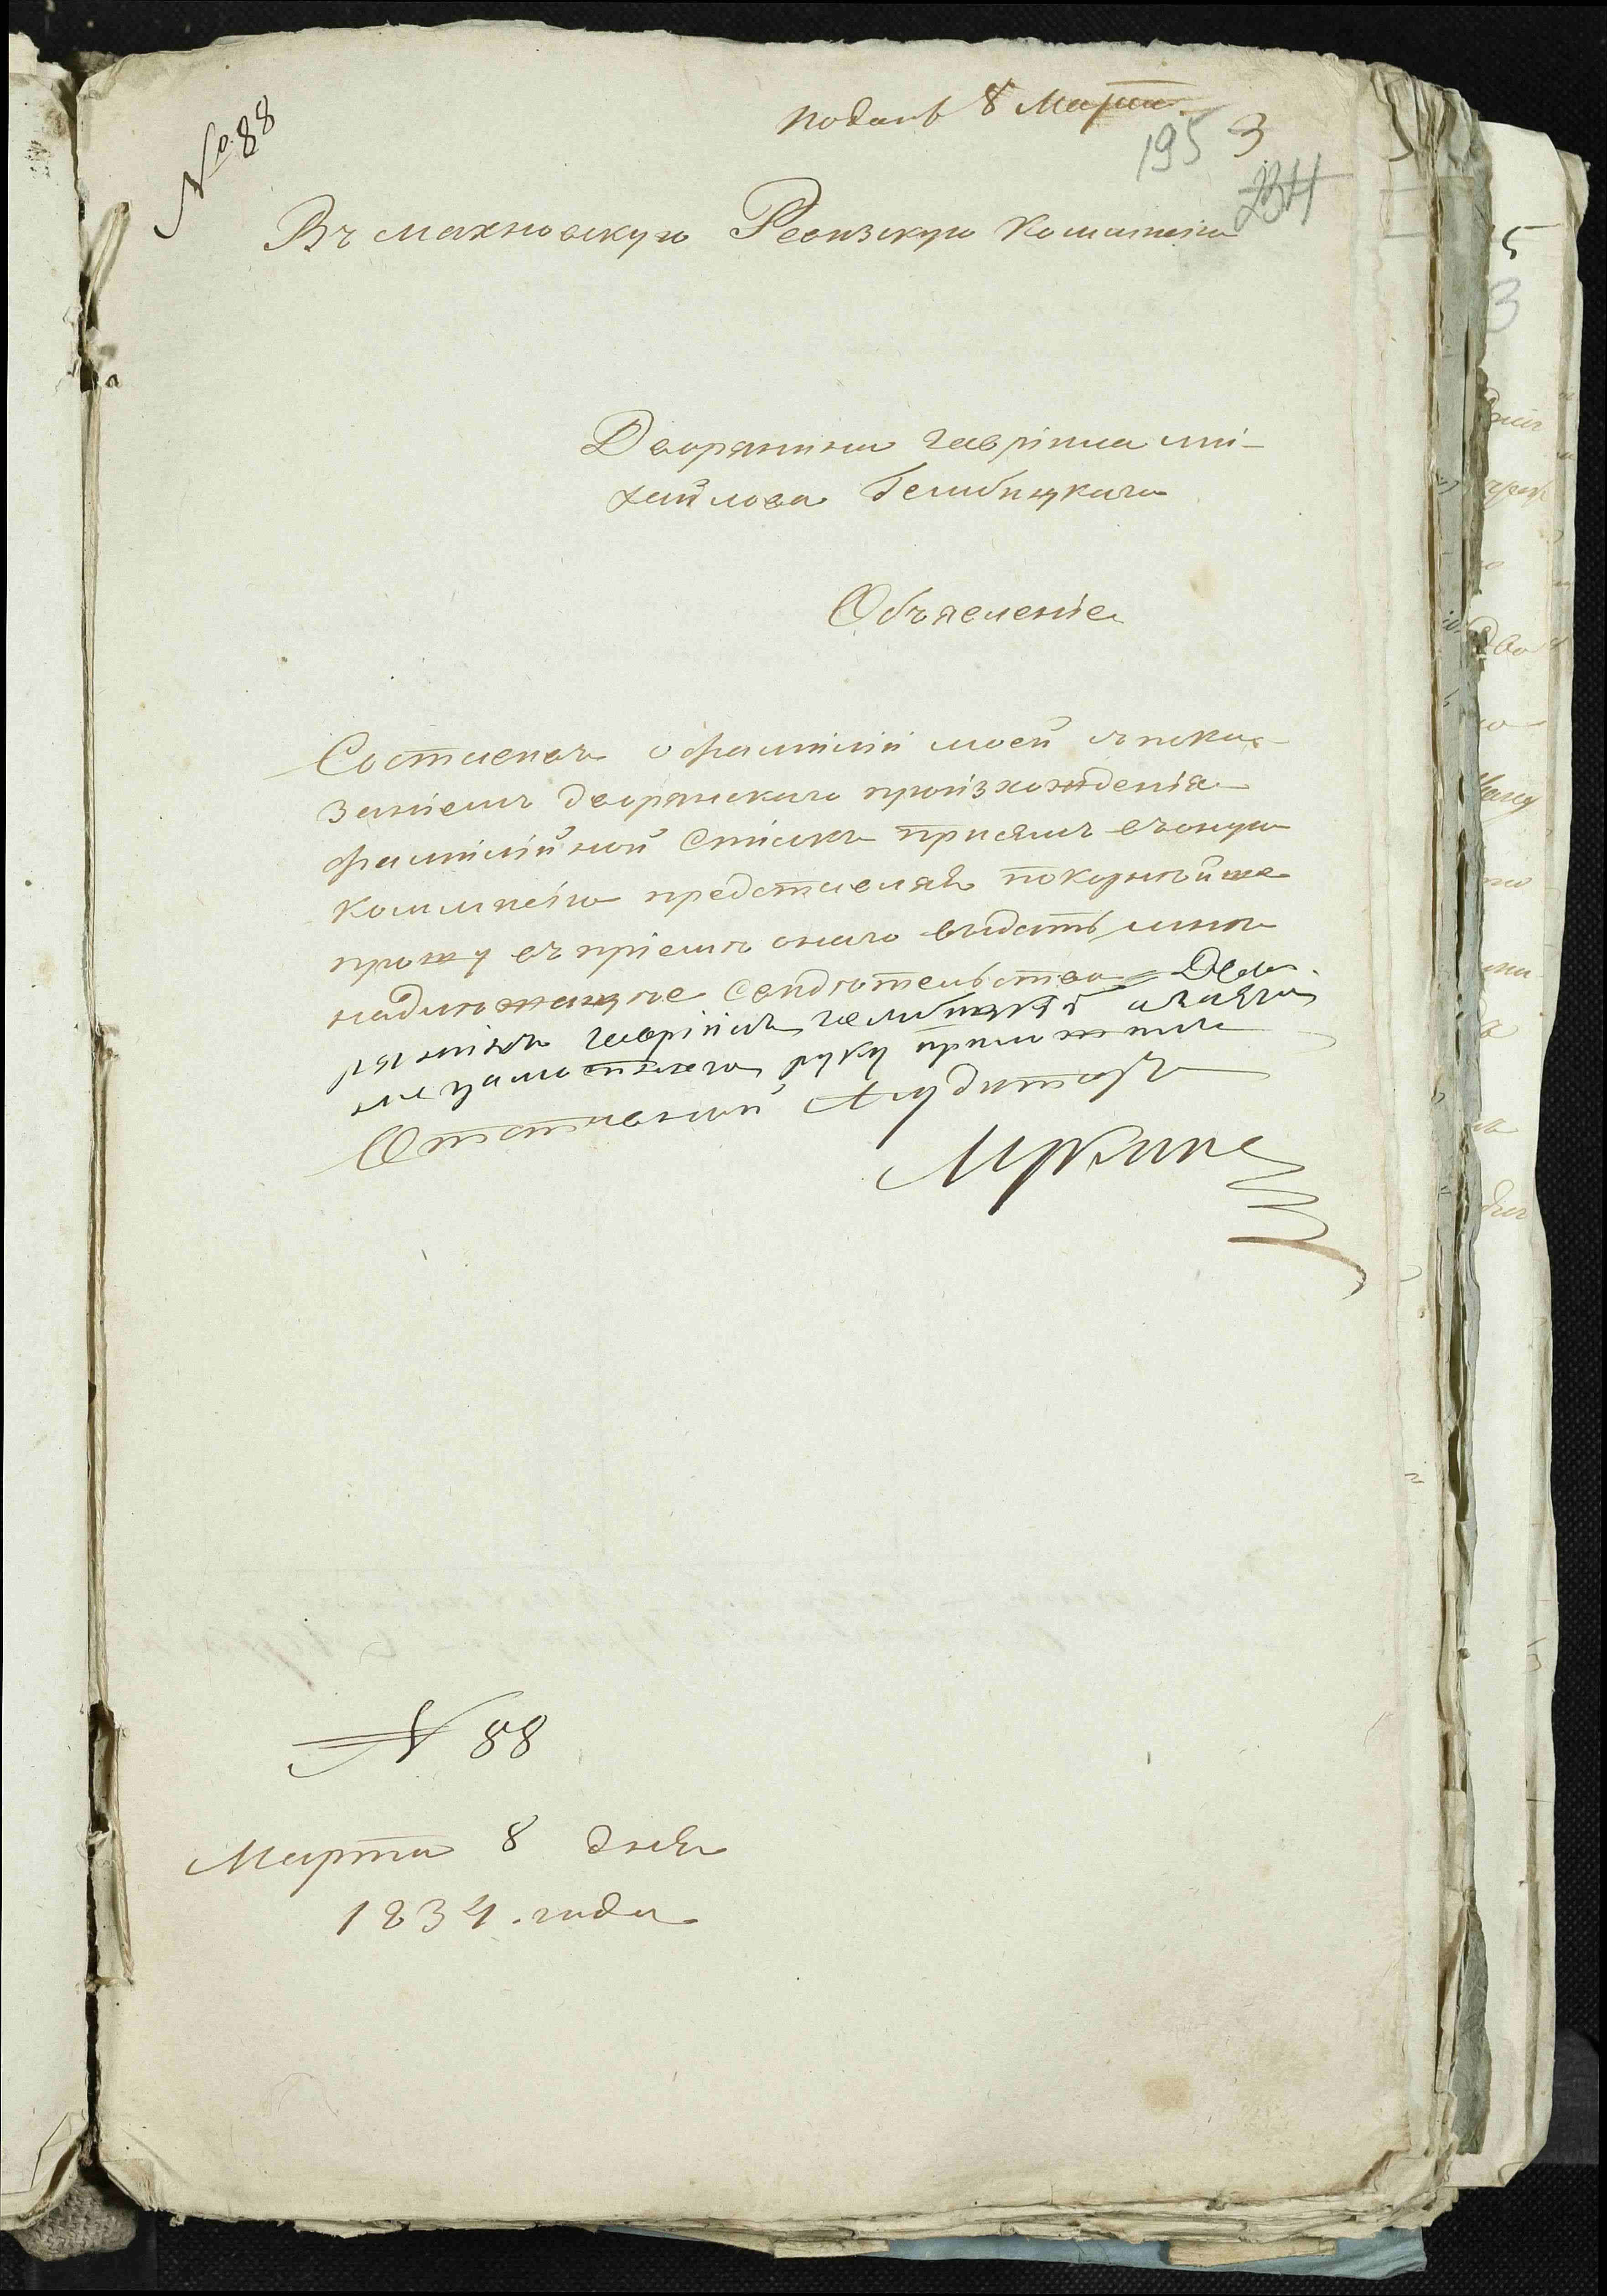 № 88
подань 8 Марта
195 3
234
Въ махновскую Ревизскую Комисию
Дворянина гавріила мі-
хайлова
Объявленіе
Составевъ о фаміліи моей съ пока-
заніемъ дворянскаго проізхожденія
фамілійной Спісокъ присямъ въ оную
коммисію представляя покорнѣйше
прошу въ пріемѣ онаго выдать мнѣ
надлежащее свидѣтельство Дво-
рянінъ гавріилъ а за его
руку приложилъ
Отставной Аудиторъ
№ 88
Марта 8 дня
1834. года